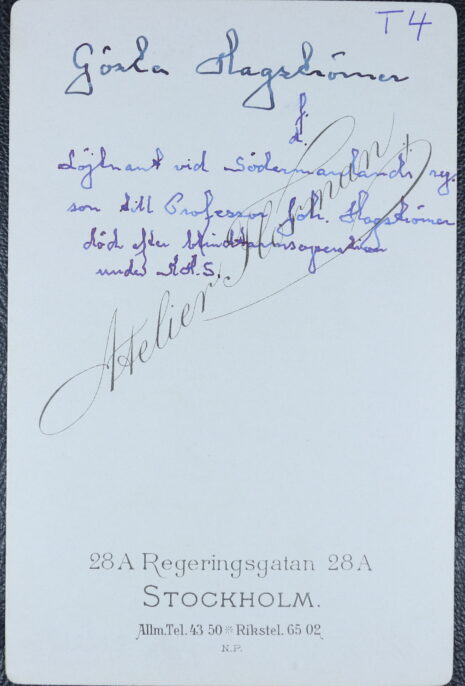 T4
Gösta Hagströmer
f.
d.
Löjtnant vid Södermanlands reg.
son till Professor Joh. Hagströmer
död efter blindtarmsoperation
under K.H.S.
Atelier Florman
28A Regeringsgatan 28A
STOCKHOLM.
Allm.Tel. 43 50 * Rikstel. 65 02
N.P.